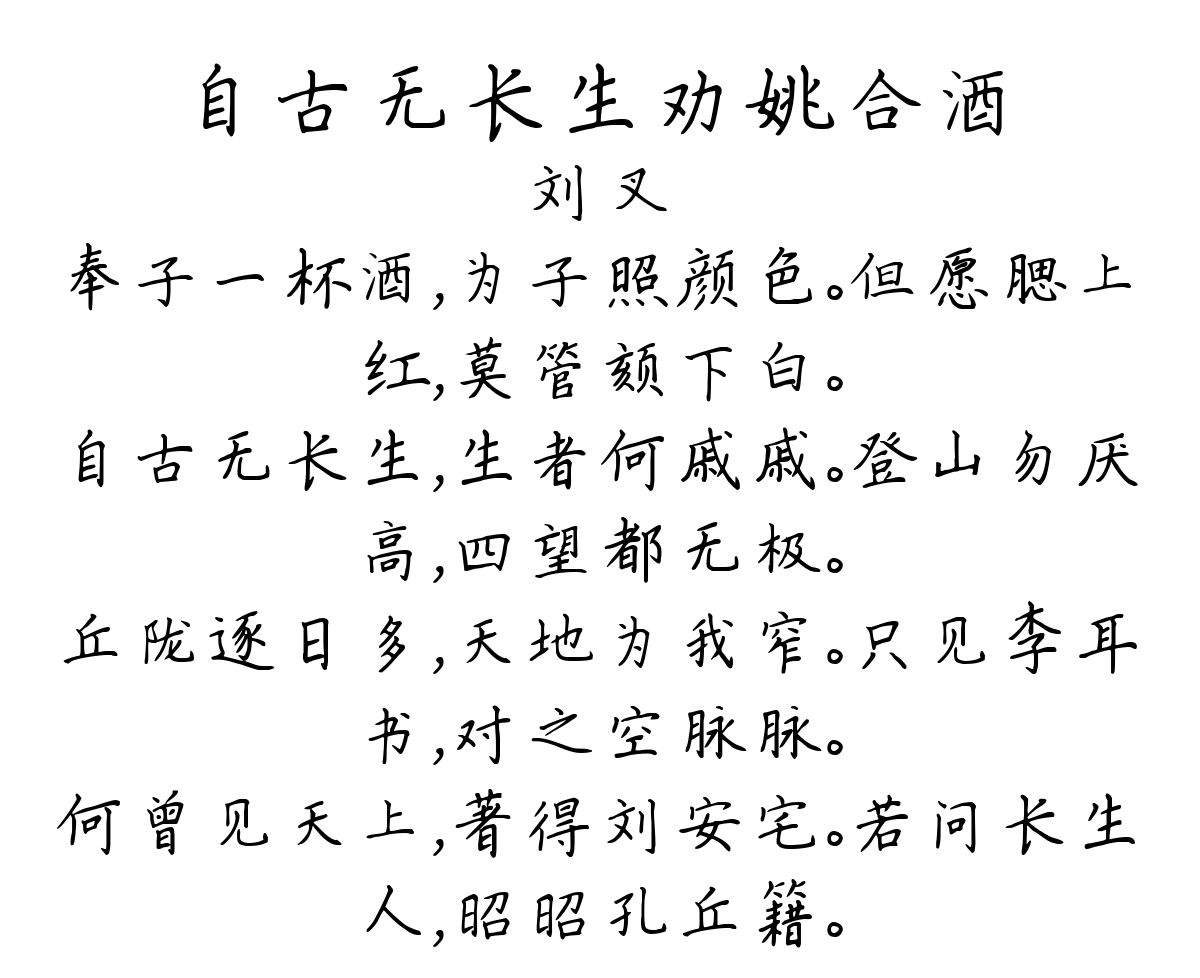 自古无长生劝姚合酒
刘叉
奉子一杯酒,为子照颜色。但愿腮上
红,莫管颏下白。
自古无长生,生者何戚戚。登山勿厌
高,四望都无极。
丘陇逐日多,天地为我窄。只见李耳
书,对之空脉脉。
何曾见天上,著得刘安宅。若问长生
人,昭昭孔丘籍。